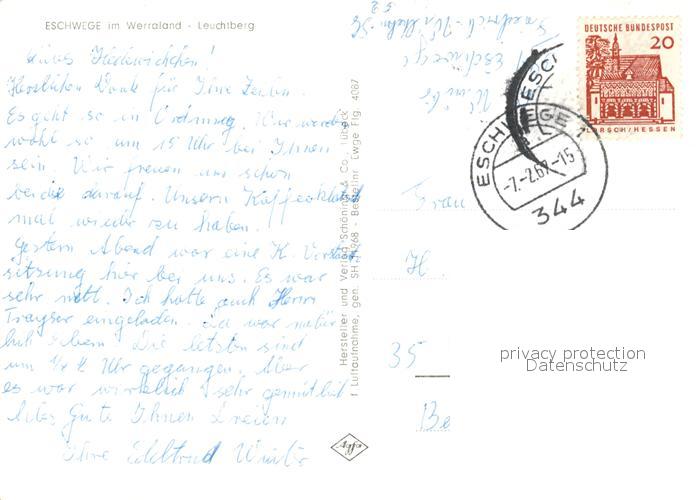 ESCHWEGE im Werraland - Leuchtberg
Herzlichen Dank für Ihre Zeilen.
Es geht so in Ordnung. Wir werden
wohl so um 15 Uhr bei Ihnen
sein. Wir freuen uns schon
beide darauf. Unsern Kaffeeklatsch
mal wieder zu haben.
Gestern Abend war eine K. Vorstands
sitzung hier bei uns. Es war
sehr nett. Ich hatte auch Herrn
Trayser eingeladen.
Die letzten sind
um Uhr gegangen. Aber
es war wirklich sehr gemütlich
Alles Gute Ihnen Dreien
Ihre Edeltrud Winter
Hersteller und Verlag Schöning & Co., Lübeck
f Luftaufnahme, gen. SH
Bestellnr. Ewge Flg. 4087
Agfa
Eschwege
DEUTSCHE BUNDESPOST
20
LORSCH/HESSEN
ESCHWEGE
-7.-2.67-15
344
Frau
H.
35
Be
privacy protection
Datenschutz